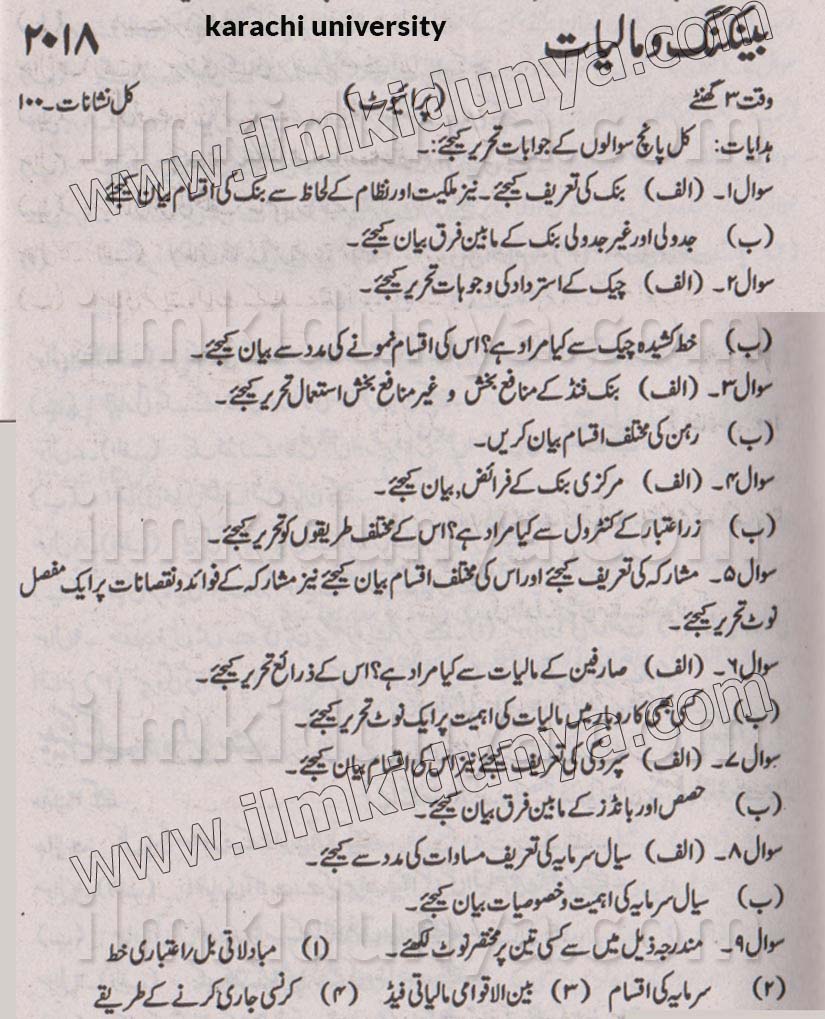 karachi university
بینکنگ و مالیات ۲۰۱۸
وقت ۳ گھنٹے (پرائیوٹ) کل نشانات۔۱۰۰
ہدایات: کل پانچ سوالوں کے جوابات تحریر کیجئے:۔
سوال ۱۔ (الف) بنک کی تعریف کیجئے۔ نیز ملکیت اور نظام کے لحاظ سے بنک کی اقسام بیان کیجئے
(ب) جدولی اور غیر جدولی بنک کے مابین فرق بیان کیجئے۔
سوال ۲۔ (الف) چیک کے استرداد کی وجوہات تحریر کیجئے۔
(ب) خط کشیدہ چیک سے کیا مراد ہے؟ اس کی اقسام نمونے کی مدد سے بیان کیجئے۔
سوال ۳۔ (الف) بنک فنڈ کے منافع بخش و غیر منافع بخش استعمال تحریر کیجئے۔
(ب) رہن کی مختلف اقسام بیان کریں۔
سوال ۴۔ (الف) مرکزی بنک کے فرائض بیان کیجئے۔
(ب) زر اعتبار کے کنٹرول سے کیا مراد ہے؟ اس کے مختلف طریقوں کو تحریر کیجئے۔
سوال ۵۔ مشارکہ کی تعریف کیجئے اور اس کی مختلف اقسام بیان کیجئے نیز مشارکہ کے فوائد و نقصانات پر ایک مفصل
نوٹ تحریر کیجئے۔
سوال ۶۔ (الف) صارفین کے مالیات سے کیا مراد ہے؟ اس کے ذرائع تحریر کیجئے۔
(ب) کسی بھی کاروبار میں مالیات کی اہمیت پر ایک نوٹ تحریر کیجئے۔
سوال ۷۔ (الف) سپردگی کی تعریف کیجئے نیز اس کی اقسام بیان کیجئے۔
(ب) حصص اور بانڈز کے مابین فرق بیان کیجئے۔
سوال ۸۔ (الف) سیال سرمایہ کی تعریف مساوات کی مدد سے کیجئے۔
(ب) سیال سرمایہ کی اہمیت و خصوصیات بیان کیجئے۔
سوال ۹۔ مندرجہ ذیل میں سے کسی تین پر مختصر نوٹ لکھئے۔ (۱) مبادلاتی بل/اعتباری خط
(۲) سرمایہ کی اقسام (۳) بین الاقوامی مالیاتی فیڈ (۴) کرنسی جاری کرنے کے طریقے
www.ilmkidunya.com
www.ilmkidunya.com
ilmkidunya.com
ilmkidunya.com
ilmkidunya.com
ilmkidunya.com
ilmkidunya.com